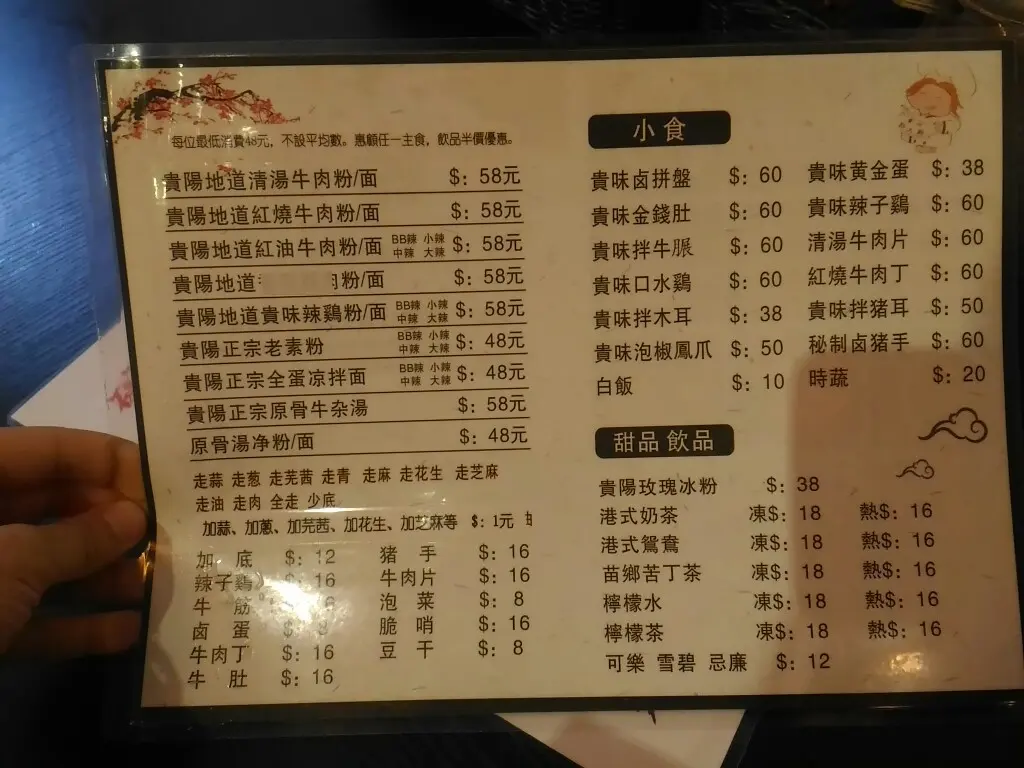 每位最低消費48元，不設平均數。惠顧任一主食，飲品半價優惠。
貴陽地道清湯牛肉粉/面 $：58元
貴陽地道紅燒牛肉粉/面 $：58元
貴陽地道紅油牛肉粉/面 BB辣 小辣 中辣 大辣 $：58元
貴陽地道 粉/面 $：58元
貴陽地道貴味辣鷄粉/面 BB辣 小辣 中辣 大辣 $：58元
貴陽正宗老素粉 BB辣 小辣 中辣 大辣 $：48元
貴陽正宗全蛋凉拌面 BB辣 小辣 中辣 大辣 $：48元
貴陽正宗原骨牛杂湯 $：58元
原骨湯净粉/面 $：48元
走蒜 走葱 走芫茜 走青 走麻 走花生 走芝麻
走油 走肉 全走 少底
加蒜、加蔥、加芫茜、加花生、加芝麻等 $：1元
加底 $：12 猪手 $：16
辣子鷄 $：16 牛肉片 $：16
牛筋 泡菜 $：8
卤蛋 豆干 $：8
牛肉丁 $：16 脆哨 $：16
牛肚 $：16
小食
貴味卤拼盤 $：60 貴味黄金蛋 $：38
貴味金錢肚 $：60 貴味辣子鷄 $：60
貴味拌牛𦟌 $：60 清湯牛肉片 $：60
貴味口水鷄 $：60 紅燒牛肉丁 $：60
貴味拌木耳 $：38 貴味拌猪耳 $：50
貴味泡椒鳳爪 $：50 秘制卤猪手 $：60
白飯 $：10 時蔬 $：20
甜品 飲品
貴陽玫瑰冰粉 $：38
港式奶茶 凍$：18 熱$：16
港式鴛鴦 凍$：18 熱$：16
苗鄉苦丁茶 凍$：18 熱$：16
檸檬水 凍$：18 熱$：16
檸檬茶 凍$：18 熱$：16
可樂 雪碧 忌廉 $：12